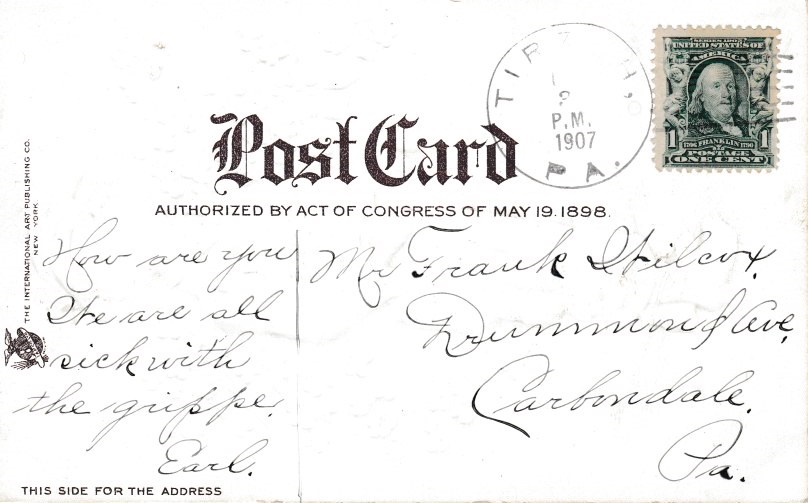 TIRZAH,
P.M.
1907
PA.
SERIES 1902
UNITED STATES OF
AMERICA
1706 FRANKLIN 1790
1 POSTAGE 1
ONE CENT
Post Card
AUTHORIZED BY ACT OF CONGRESS OF MAY 19.1898.
THE INTERNATIONAL ART PUBLISHING CO.
NEW YORK
How are you
We are all
sick with
the grippe.
Earl.
Mr Frank Wilcox,
Drummond Ave,
Carbondale,
Pa.
THIS SIDE FOR THE ADDRESS